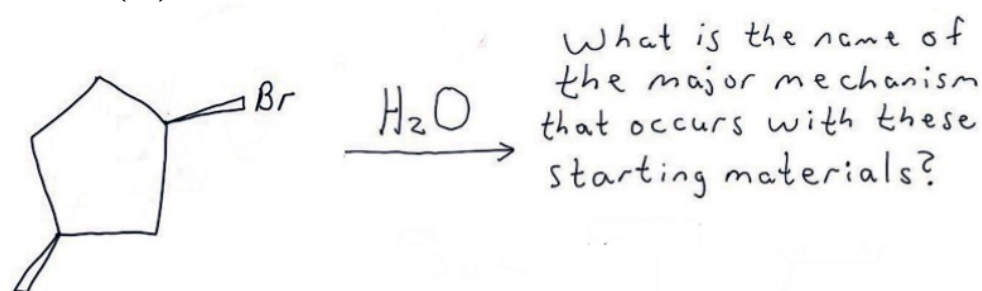 Br
H₂O
What is the name of
the major mechanism
that occurs with these
starting materials?